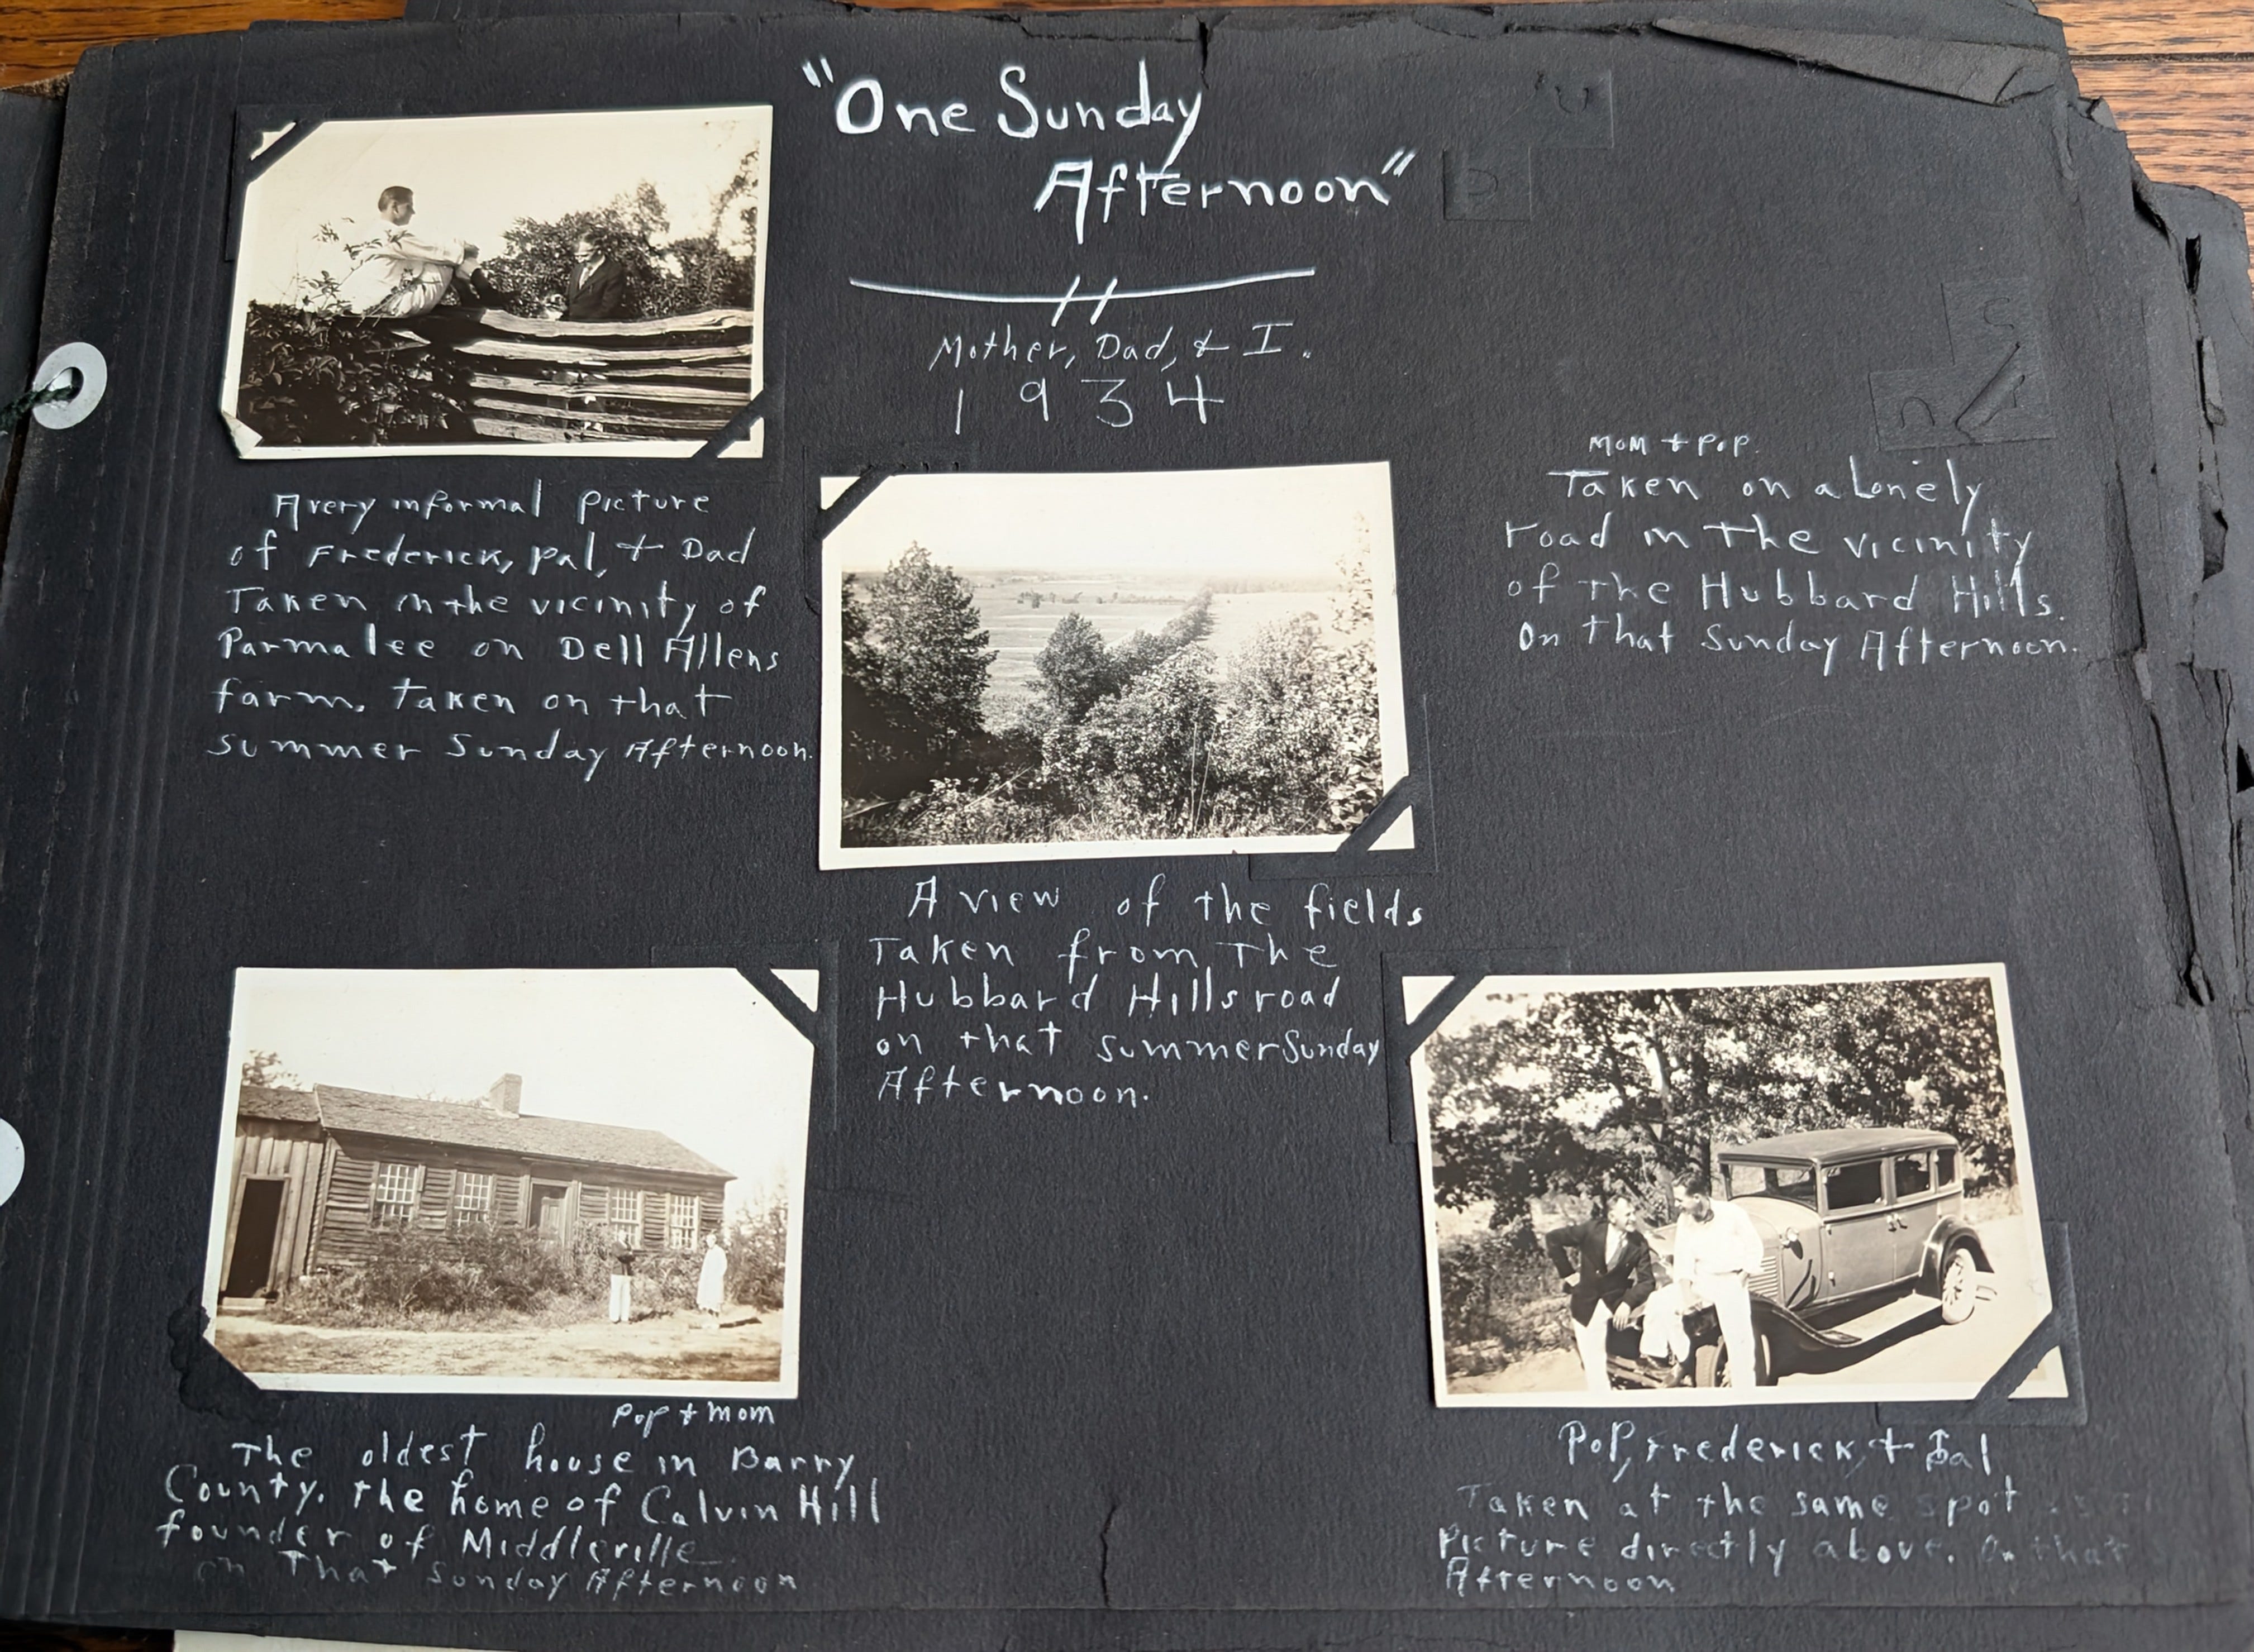 "One Sunday
Afternoon"
Mother, Dad, & I.
1934
A very informal picture
of Frederick, Pal, + Dad
Taken in the vicinity of
Parmalee on Dell Allens
farm. Taken on that
summer Sunday Afternoon.
Mom + Pop.
Taken on a Lonely
road in the vicinity
of the Hubbard Hills.
On that Sunday Afternoon.
A view of the fields
Taken from The
Hubbard Hills road
on that summer Sunday
Afternoon.
Pop + Mom
The oldest house in Barry
County. the home of Calvin Hill
founder of Middleville
on That Sunday Afternoon
Pop, Frederick, + Pal
Taken at the same spot
Picture directly above. On that
Afternoon